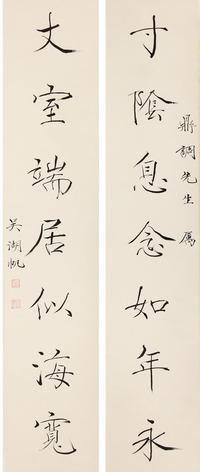 寸陰息念如年永
鼎調先生屬
丈室端居似海寬
吳湖帆